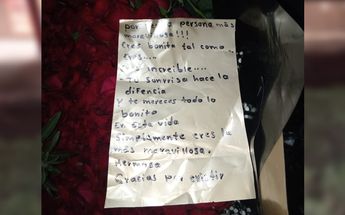 por ser la persona más
maravillosa!!!
Eres bonita tal como
eres....
increible....
tu sunrisa hace la
difencia
Y te mereces todo lo
bonito
En esta vida
Simplemente eres la
más maravillosa,
Hermosa
Gracias por existir